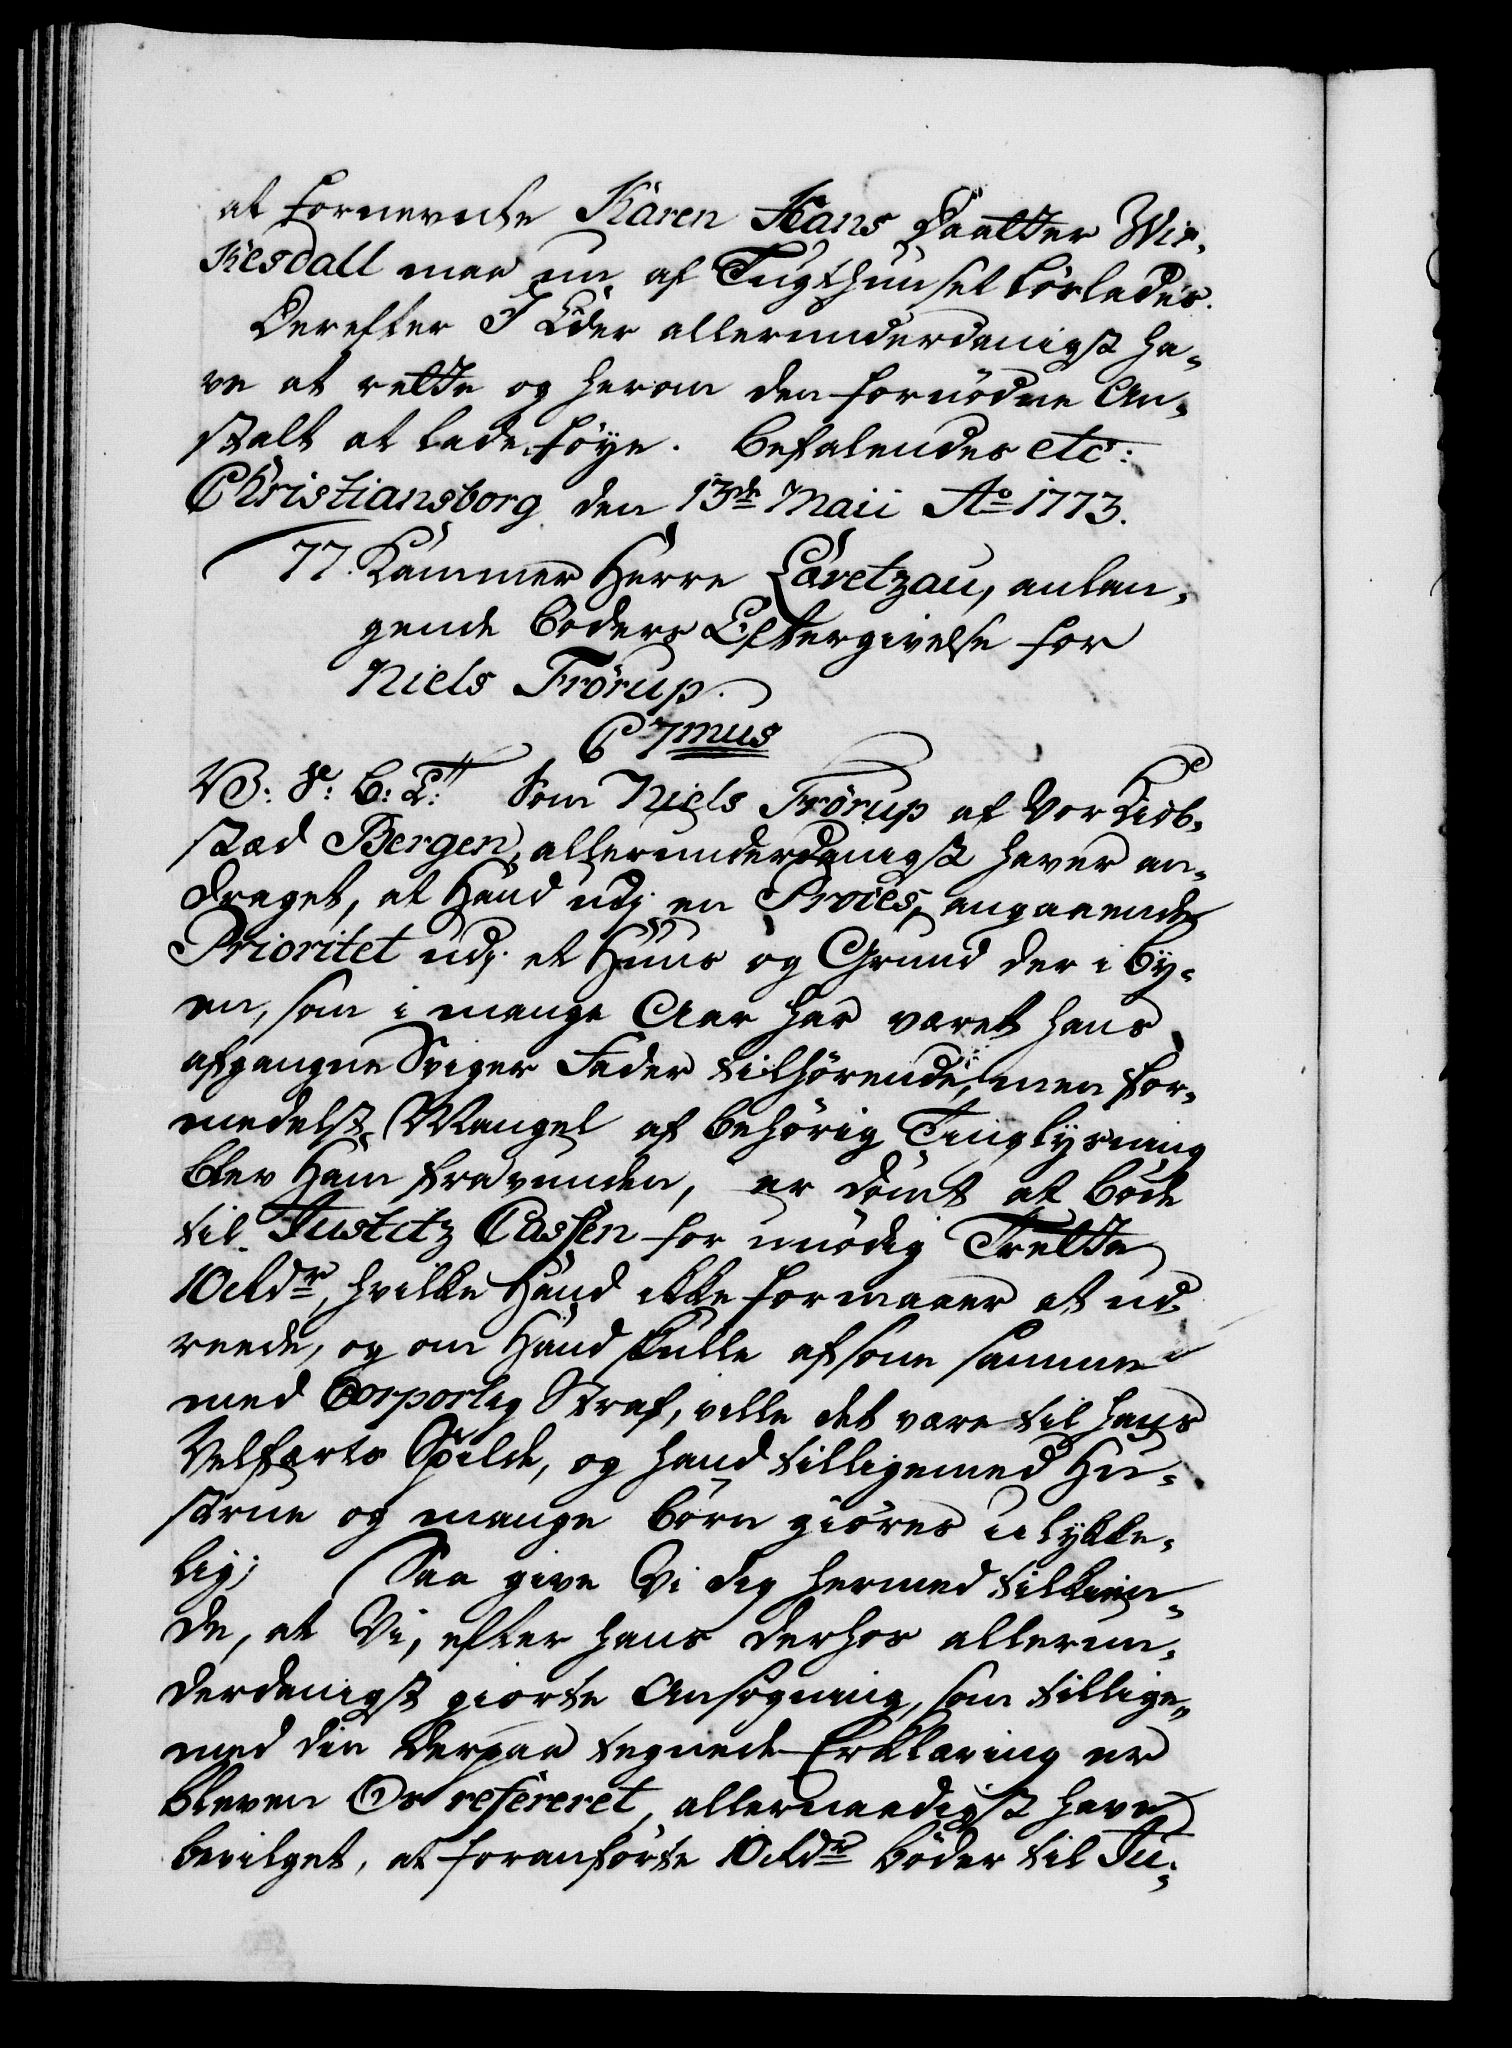 at fornevnte Karen Hans Daatter Wir¬
Kesdall maa nu af Tugthuuset lösladis.
Derefter I Eder allerunderdanigst ha¬
ve at rette og herom den fornödne An¬
stalt at lade föye. Befalendes etc:
Christiansborg den 13de Maii Ao 1773.
77. Kammer Herre Levetzau, anlan¬
gende Boders Eftergivelse for
Niels Frörup.
C 7mus
V: S: G: T: Som Niels Frörup af Vor Kiöb¬
stæd Bergen, allerunderdanigst haver an¬
draget, at Hand udj en Proces, angaaende
Prioritet udj et Huus og Grund der i By¬
en, som i mange Aar har været hans
afgangne Sviger Fader tilhörende, men for¬
medelst Mangel af behörig Tinglysning
blev Ham fravunden, er dömt at böde
til Justitz Cassen for unödig Trette
10 Rdr, hvilke Hand ikke formaaer at ud¬
reede, og om Hand skulle afsone samme
med Corporlig Straf, ville det være til hans
Velfærts Spilde, og hand tilligemed Hu¬
strue og mange Börn giöres ulykke¬
lig; Saa give Vi dig hermed tilkien¬
de, at Vi, efter hans derhos allerun¬
derdanigst giorte Ansögning, som tillige¬
med din derpaa tegnede Erklæring er
bleven Os refereret, allernaadigst have
bevilget, at foranförte 10 Rdr Böder til Ju¬